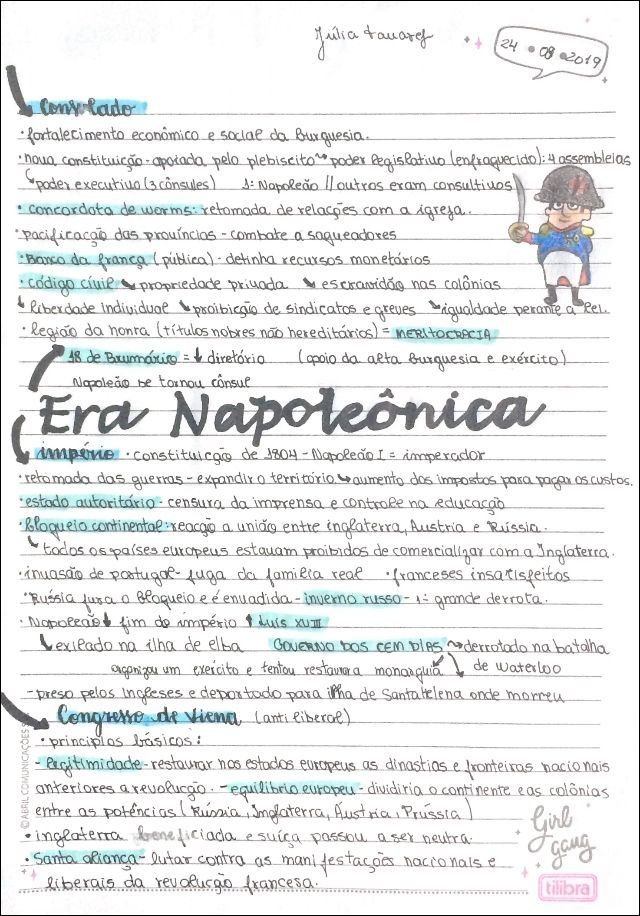 Júlia Tavares
24 • 08 • 2019
Consulado
• fortalecimento econômico e social da burguesia.
• nova constituição - apoiada pelo plebiscito ↝ poder legislativo (enfraquecido): 4 assembleias
↳ poder executivo (3 cônsules) 1: Napoleão // outros eram consultivos
• concordata de worms: retomada de relações com a igreja.
• pacificação das províncias - combate a saqueadores
• Banco da frança (pública) - detinha recursos monetários
• código civil ↘ propriedade privada ↘ escravidão nas colônias
↳ liberdade individual ↘ proibição de sindicatos e greves ↘ igualdade perante a lei.
• legião da honra (títulos nobres não hereditários) = MERITOCRACIA
18 de Brumário = ↓ diretório (apoio da alta burguesia e exército)
Napoleão se tornou cônsul
Era Napoleônica
império • constituição de 1804 - Napoleão I = imperador
• retomada das guerras - expandir o território ↪ aumento dos impostos para pagar os custos.
• estado autoritário - censura da imprensa e controle na educação
• Bloqueio continental: reação a união entre inglaterra, Austria e Rússia.
↳ todos os países europeus estavam proibidos de comercializar com a Inglaterra.
• invasão de portugal - fuga da família real • franceses insatisfeitos
• Rússia fura o bloqueio e é envadida - inverno russo - 1º grande derrota.
• Napoleão ↓ fim do império ↑ Luis XVIII
↳ exilado na ilha de elba GOVERNO DOS CEM DIAS ↝ derrotado na batalha
organizou um exército e tentou restaurar a monarquia ↘ de Waterloo
- preso pelos Ingleses e deportado para ilha de Santa Helena onde morreu
Congresso de Viena (anti liberal)
• princípios básicos:
- legitimidade - restaurar nos estados europeus as dinastias e fronteiras nacionais
anteriores a revolução. - equilíbrio europeu - dividiria o continente e as colônias
entre as potências (Rússia, Inglaterra, Áustria, Prússia)
• inglaterra beneficiada e suíça passou a ser neutra.
• Santa aliança - lutar contra as manifestações nacionais e
liberais da revolução francesa.
© ABRIL COMUNICAÇÕES S
Girl
gang
tilibra